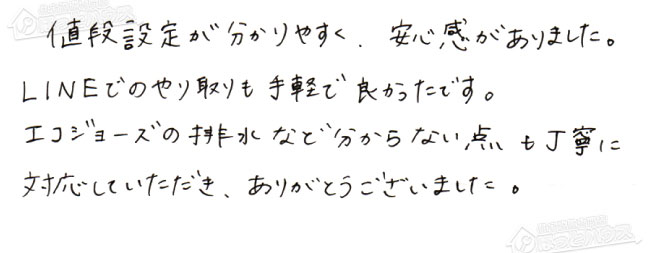 値段設定が分かりやすく、安心感がありました。
LINEでのやり取りも手軽で良かったです。
エコジョーズの排水など分からない点も丁寧に
対応していただき、ありがとうございました。